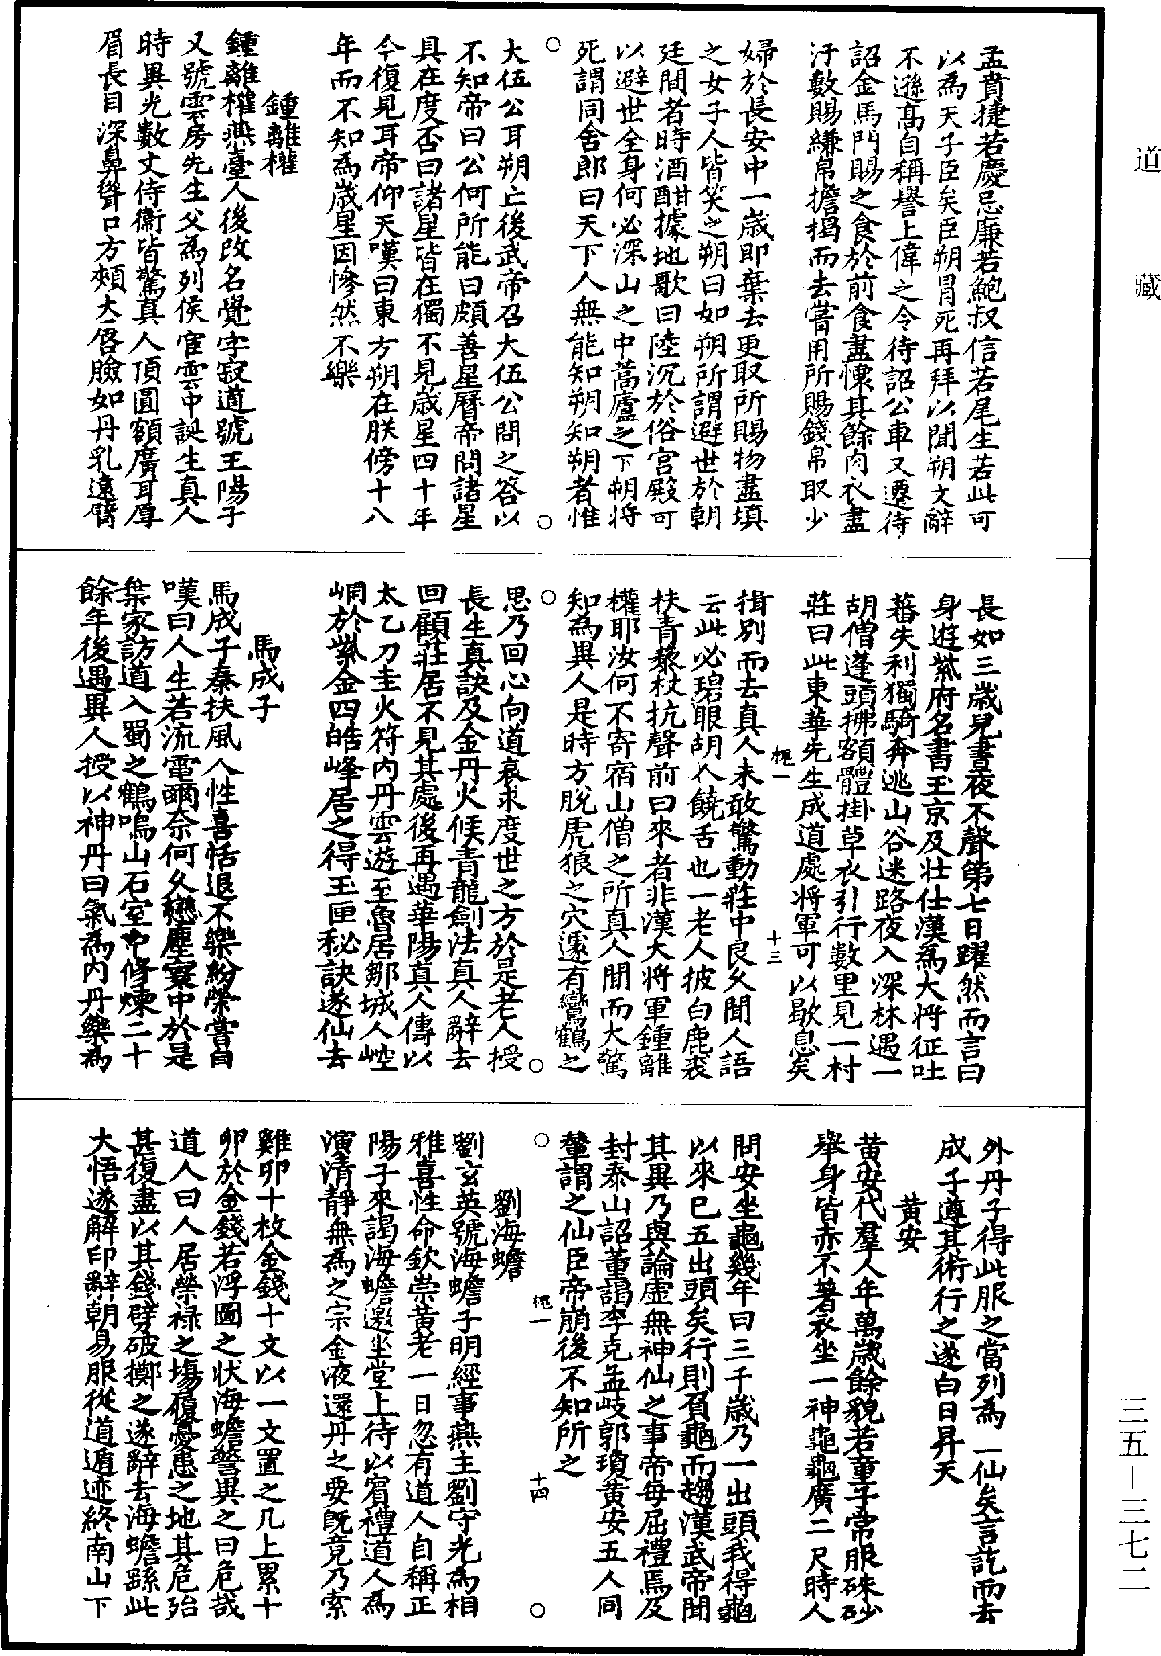 道藏
孟賁捷若慶忌廉若鮑叔信若尾生若此可
以為天子臣矣臣朔冒死再拜以聞朔文辭
不遜高自稱譽上偉之令待詔公車又遷待
詔金馬門賜之食於前食盡懷其餘肉衣盡
汙數賜縑帛擔揭而去嘗用所賜錢帛取少
婦於長安中一歲即棄去更取所賜物盡填
之女子人皆笑之朔曰如朔所謂避世於朝
廷間者時酒酣據地歌曰陸沉於俗宮殿可
以避世全身何必深山之中蒿廬之下朔將
死謂同舍郎曰天下人無能知朔知朔者惟
大伍公耳朔亡後武帝召大伍公問之答以
不知帝曰公何所能曰頗善星曆帝問諸星
具在度否曰諸星皆在獨不見歲星四十年
今復見耳帝仰天嘆曰東方朔在朕傍十八
年而不知為歲星因慘然不樂
鍾離權
鍾離權燕臺人後改名覺字寂道號王陽子
又號雲房先生父為列侯宦雲中誕生真人
時異光數丈侍衞皆驚真人頂圓額廣耳厚
眉長目深鼻聳口方頰大唇臉如丹乳遠臂
長如三歲兒晝夜不聲第七日躍然而言曰
身遊紫府名書玉京及壯仕漢為大將征吐
蕃失利獨騎奔逃山谷迷路夜入深林遇一
胡僧蓬頭拂額體掛草衣引行數里見一村
莊曰此東華先生成道處將軍可以歇息矣
槐一
十三
揖別而去真人未敢驚動莊中良久聞人語
云此必碧眼胡人饒舌也一老人披白鹿裘
扶青藜杖抗聲前曰來者非漢大將軍鍾離
權耶汝何不寄宿山僧之所真人聞而大驚
知為異人是時方脫虎狼之穴遽有鸞鶴之
思乃回心向道哀求度世之方於是老人授
長生真訣及金丹火候青龍劍法真人辭去
回顧莊居不見其處後再遇華陽真人傳以
太乙刀圭火符內丹雲遊至魯居鄒城人崆
峒於紫金四皓峰居之得玉匣秘訣遂仙去
馬成子
馬成子秦扶風人性喜恬退不樂紛榮嘗自
嘆曰人生若流電爾奈何久戀塵寰中於是
棄家訪道入蜀之鶴鳴山石室中修煉二十
餘年後遇異人授以神丹曰氣為內丹藥為
外丹子得此服之當列為一仙矣言訖而去
成子遵其術行之遂白日昇天
黃安
黃安代羣人年萬歲餘貌若童子常服硃砂
舉身皆赤不著衣坐一神龜龜廣二尺時人
問安坐龜幾年曰三千歲乃一出頭我得龜
以來已五出頭矣行則負龜而趨漢武帝聞
其異乃與論虛無神仙之事帝每屈禮焉及
封泰山詔董謁李克孟岐郭瓊黃安五人同
輦謂之仙臣帝崩後不知所之
槐一
十四
劉海蟾
劉玄英號海蟾子明經事燕主劉守光為相
雅喜性命欽崇黃老一日忽有道人自稱正
陽子來謁海蟾邀坐堂上待以賓禮道人為
演清靜無為之宗金液還丹之要既竟乃索
雞卵十枚金錢十文以一文置之几上累十
卵於金錢若浮圖之狀海蟾驚異之曰危哉
道人曰人居榮祿之場履憂患之地其危殆
甚復盡以其錢劈破擲之遂辭去海蟾繇此
大悟遂解印辭朝易服從道遁迹終南山下
三五—三七二